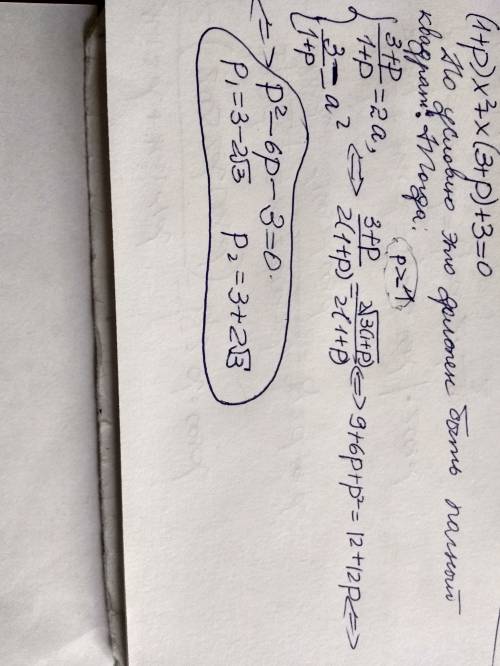 (1+p)x²+x(3+p)+3=0
По условию это должен быть полный
квадрат. Тогда:
p≥-1
{ (3+p)/(1+p) = 2a,
3/(1+p) = a² <=> (3+p)/(2(1+p)) = 2√(3(1+p))/(2(1+p)) <=> 9+6p+p² = 12+12p <=>
<=> p²-6p-3=0.
p₁=3-2√3 p₂=3+2√3